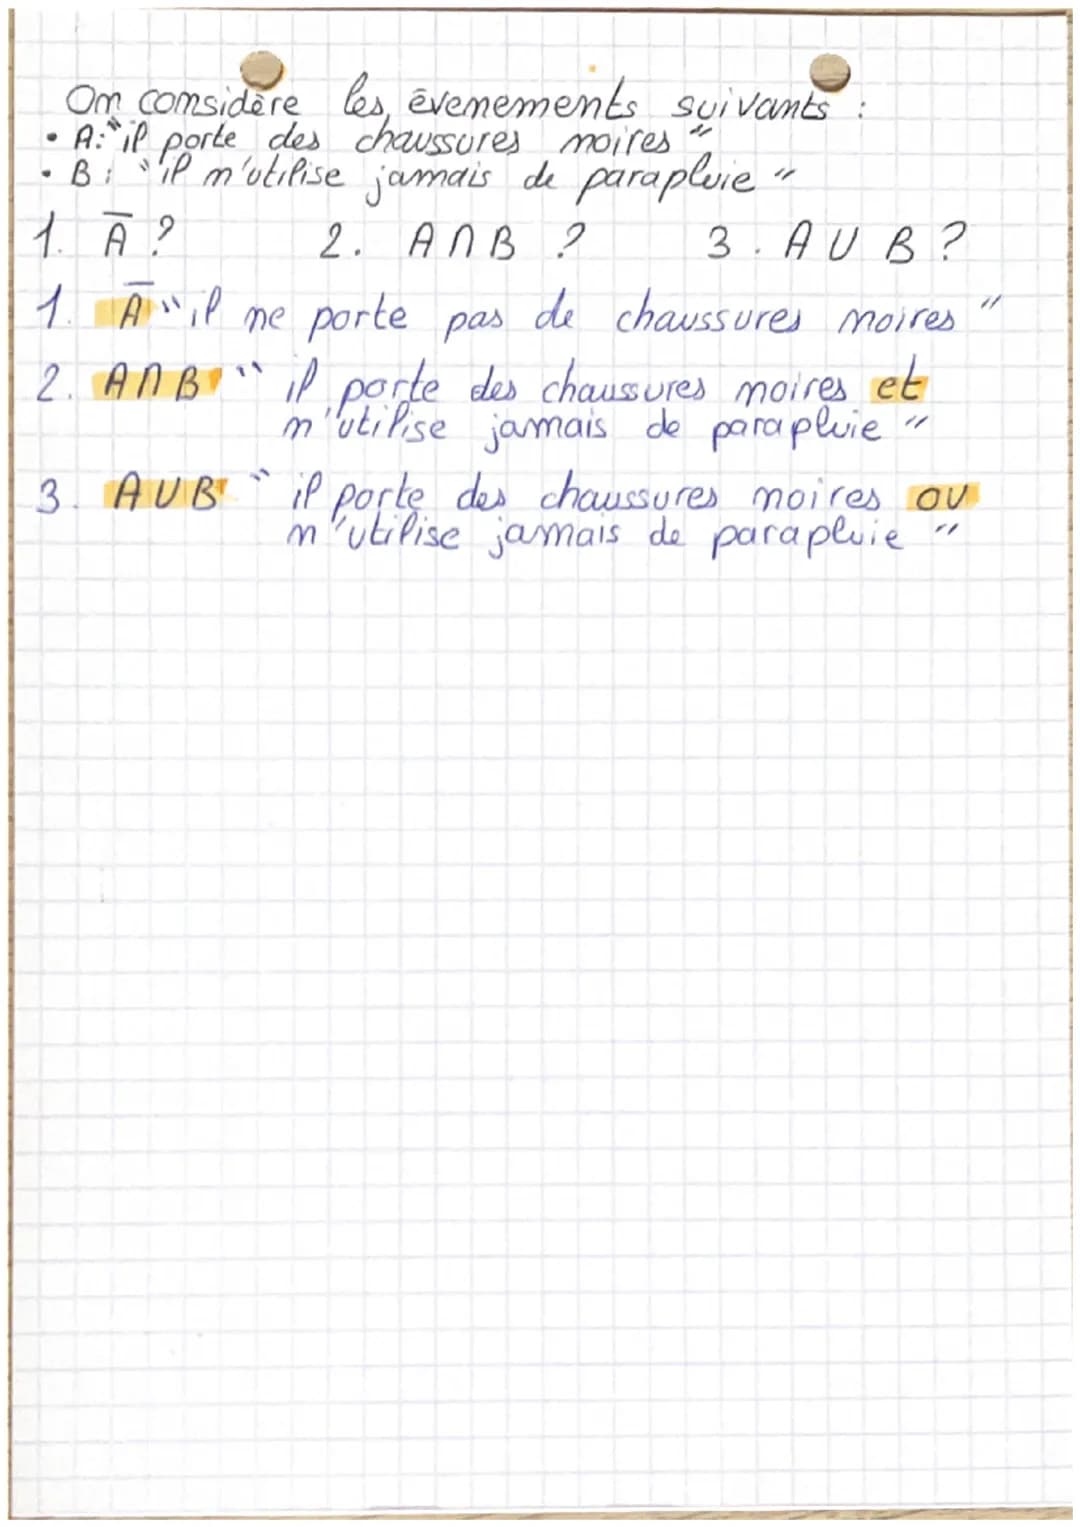 On considère les évenements suivants :
• A: "il porte des chaussures noires"
• B : "il n'utilise jamais de parapluie"
1. A̅ ? 2. A∩B ? 3. A∪B ?
1. A̅ "il ne porte pas de chaussures noires"
2. A∩B "il porte des chaussures noires et
n'utilise jamais de parapluie"
3. A∪B "il porte des chaussures noires ou
n'utilise jamais de parapluie"